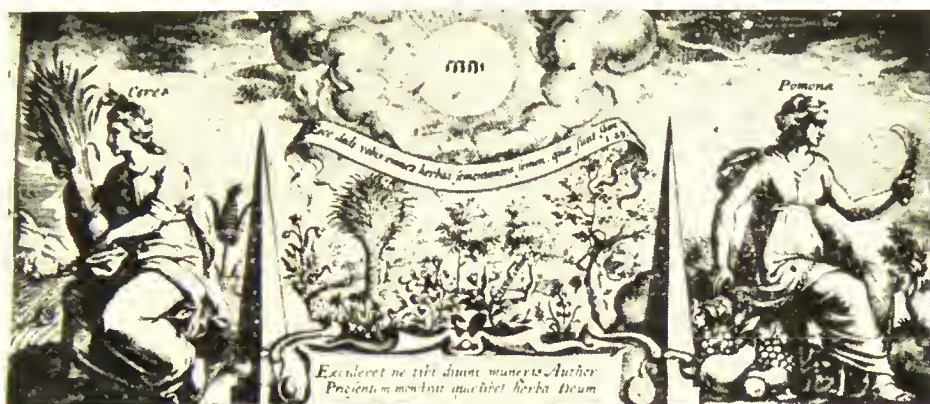 Ceres
Pomona
Ecce dedi vobis omnes herbas sementantes semen, quæ sunt Gen. 1. 29
Excideret ne tibi diuini muneris Author
Præsentem monstrat quælibet herba Deum